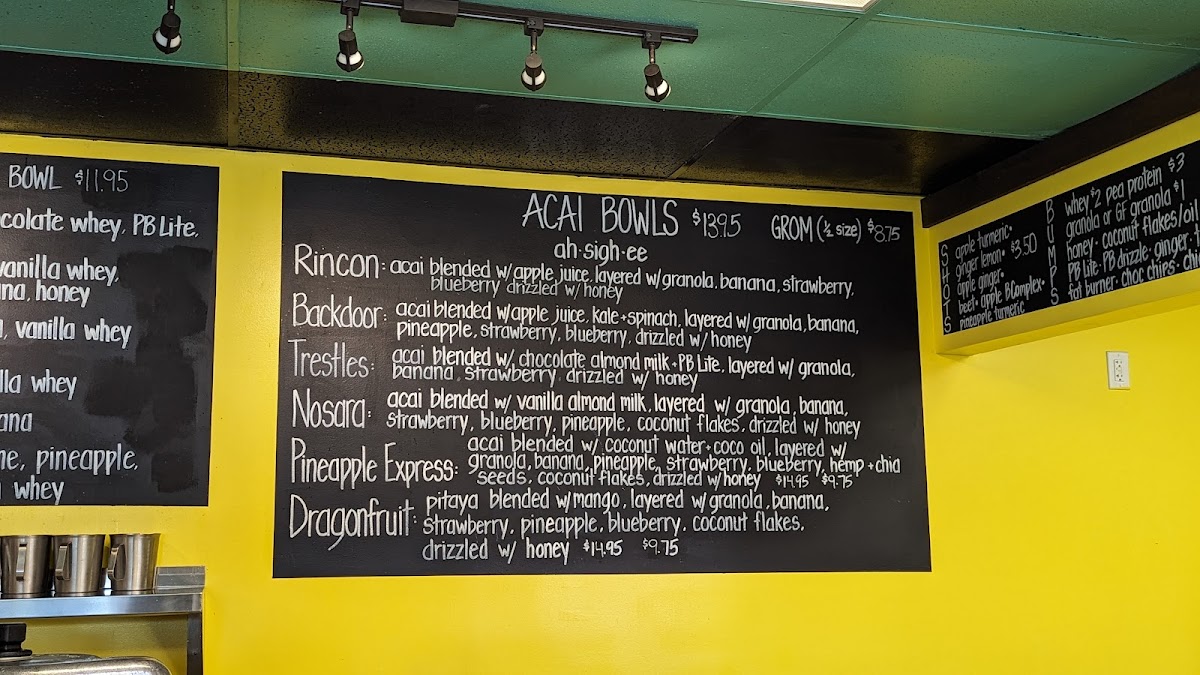 BOWL $11.95
colate whey, PB Lite,
vanilla whey,
na, honey
, vanilla whey
lla whey
ana
ne, pineapple,
whey
ACAI BOWLS $13.95 GROM (½ size) $8.75
ah·sigh·ee
Rincon: acai blended w/apple juice, layered w/granola, banana, strawberry,
blueberry drizzled w/ honey
Backdoor: acai blended w/apple juice, kale+spinach, layered w/granola, banana,
pineapple, strawberry, blueberry, drizzled w/ honey
Trestles: acai blended w/ chocolate almond milk+PB Lite, layered w/ granola,
banana, strawberry, drizzled w/ honey
Nosara: acai blended w/ vanilla almond milk, layered w/ granola, banana,
strawberry, blueberry, pineapple, coconut flakes, drizzled w/ honey
Pineapple Express: acai blended w/ coconut water+coco oil, layered w/
granola, banana, pineapple, strawberry, blueberry, hemp+chia
seeds, coconut flakes, drizzled w/honey $14.95 $9.75
Dragonfruit: pitaya blended w/mango, layered w/granola, banana,
strawberry, pineapple, blueberry, coconut flakes,
drizzled w/ honey $14.95 $9.75
SHOTS
apple turmeric·
ginger lemon· $3.50
apple ginger·
beet· apple B Complex·
pineapple turmeric
BUMPS
whey $2 pea protein $3
granola or GF granola $1
honey· coconut flakes/oil
PB Lite· PB drizzle· ginger,
fat burner· choc chips· chi